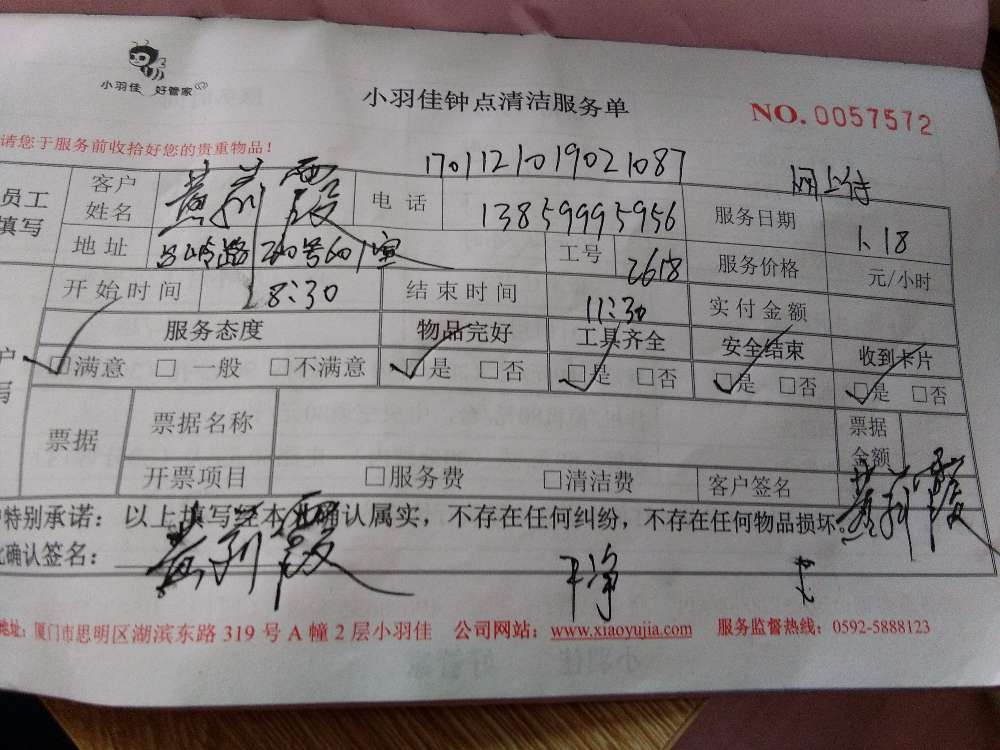 小羽佳 好管家
小羽佳钟点清洁服务单
NO. 0057572
请您于服务前收拾好您的贵重物品！
1701121019021087
网上付
员工填写 客户姓名 黄莉霞 电话 13859995956 服务日期 1.18
地址 吕岭路 号601室 工号 2618 服务价格 元/小时
开始时间 8:30 结束时间 11:30 实付金额
服务态度 物品完好 工具齐全 安全结束 收到卡片
☑满意 □一般 □不满意 ☑是 □否 ☑是 □否 ☑是 □否 ☑是 □否
票据 票据名称 票据金额
开票项目 □服务费 □清洁费 客户签名 黄莉霞
特别承诺：以上填写经本 确认属实，不存在任何纠纷，不存在任何物品损坏。
此确认签名： 黄莉霞 干净
地址：厦门市思明区湖滨东路 319 号 A 幢 2 层小羽佳 公司网站：www.xiaoyujia.com 服务监督热线：0592-5888123